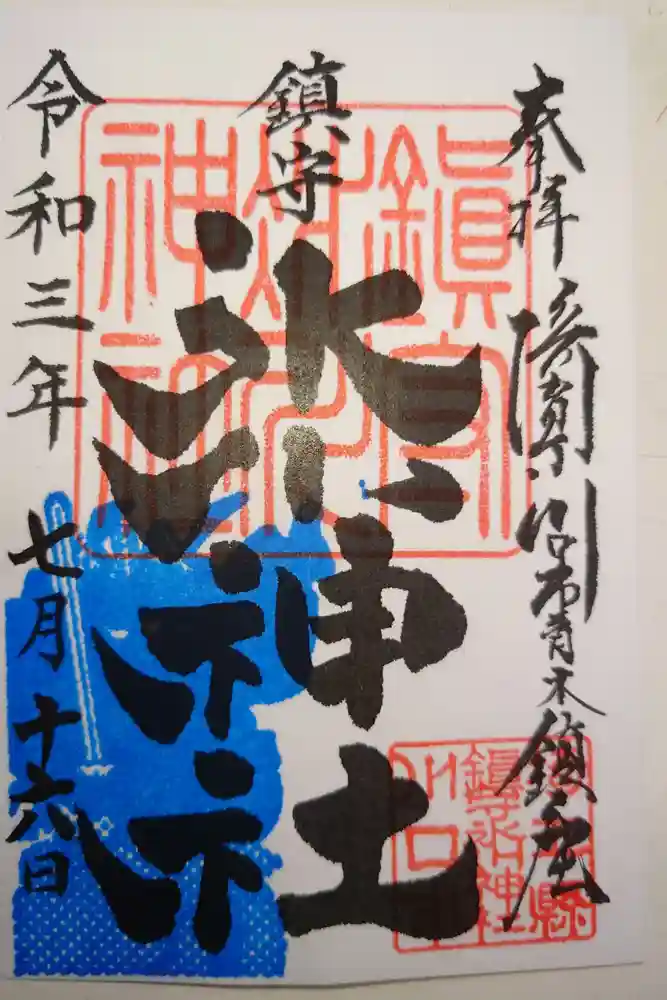 奉拝 埼玉県川口市青木鎮座
鎮守
氷川神社
令和三年 七月十六日
鎮守
氷川
神社
鎮守氷川神社